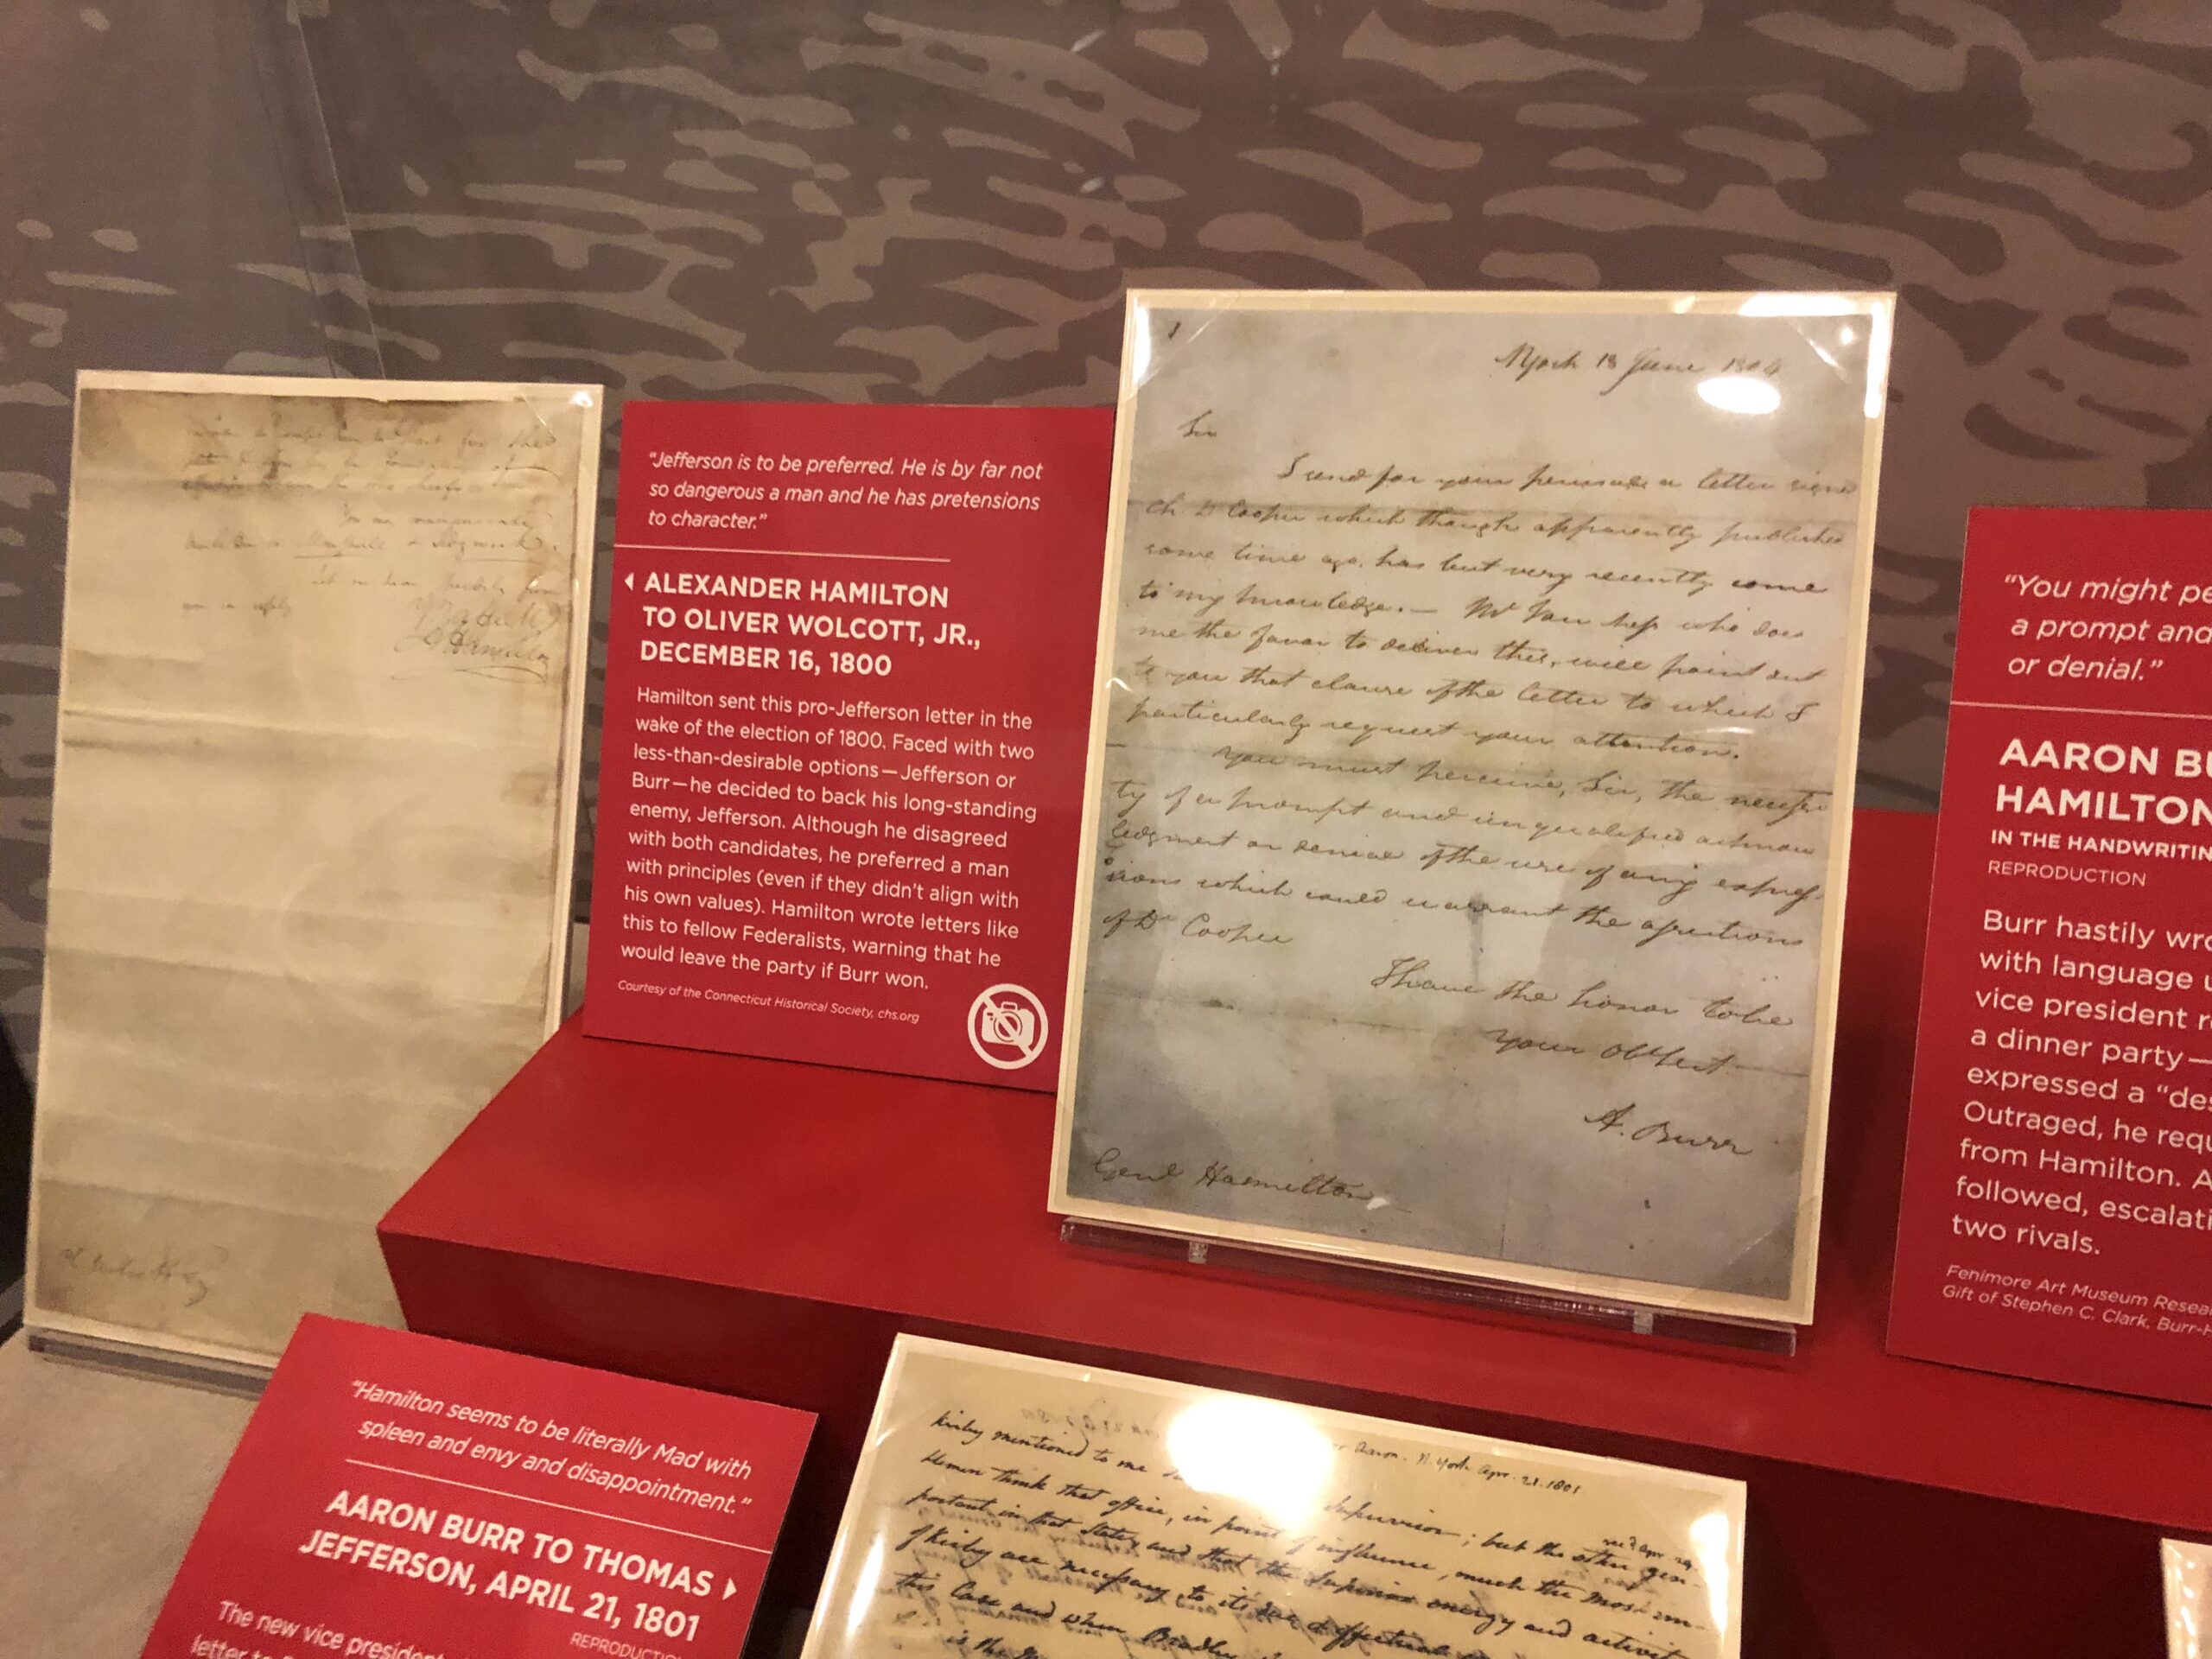 You
Let me hear
you
A Hamilton
"Jefferson is to be preferred. He is by far not
so dangerous a man and he has pretensions
to character."
ALEXANDER HAMILTON
TO OLIVER WOLCOTT, JR.,
DECEMBER 16, 1800
Hamilton sent this pro-Jefferson letter in the
wake of the election of 1800. Faced with two
less-than-desirable options—Jefferson or
Burr—he decided to back his long-standing
enemy, Jefferson. Although he disagreed
with both candidates, he preferred a man
with principles (even if they didn't align with
his own values). Hamilton wrote letters like
this to fellow Federalists, warning that he
would leave the party if Burr won.
Courtesy of the Connecticut Historical Society, chs.org
1
NYork 18 June 1804
Sir
I send for your perusal a letter signed
Ch D Cooper which though apparently published
some time ago, has but very recently come
to my knowledge.— Mr Van Ness who does
me the favor to deliver this, will point out
to you that clause of the letter to which I
particularly request your attention.
You must perceive, Sir, the necessi
ty of a prompt and unqualified acknow
ledgment or denial of the use of any expres
sions which could warrant the assertions
of Dr Cooper
I have the honor to be
Your Obt st
A. Burr
Genl Hamilton
"You might pe
a prompt and
or denial."
AARON BU
HAMILTON
IN THE HANDWRITIN
REPRODUCTION
Burr hastily wro
with language u
vice president r
a dinner party—
expressed a "des
Outraged, he requ
from Hamilton. A
followed, escalati
two rivals.
Fenimore Art Museum Resea
Gift of Stephen C. Clark. Burr-H
"Hamilton seems to be literally Mad with
spleen and envy and disappointment."
AARON BURR TO THOMAS
JEFFERSON, APRIL 21, 1801
REPRODUCTIO
The new vice president
letter to
Aaron. N. York Apr. 21. 1801
recd Apr. 29
Kirby mentioned to me Supervisor; but the other gen-
tlemen think that office, in point of influence, much the most im-
portant in that State, and that the Superior energy and activit
of Kirby are necessary to its due & effectual
this Case and when Bradley
is the